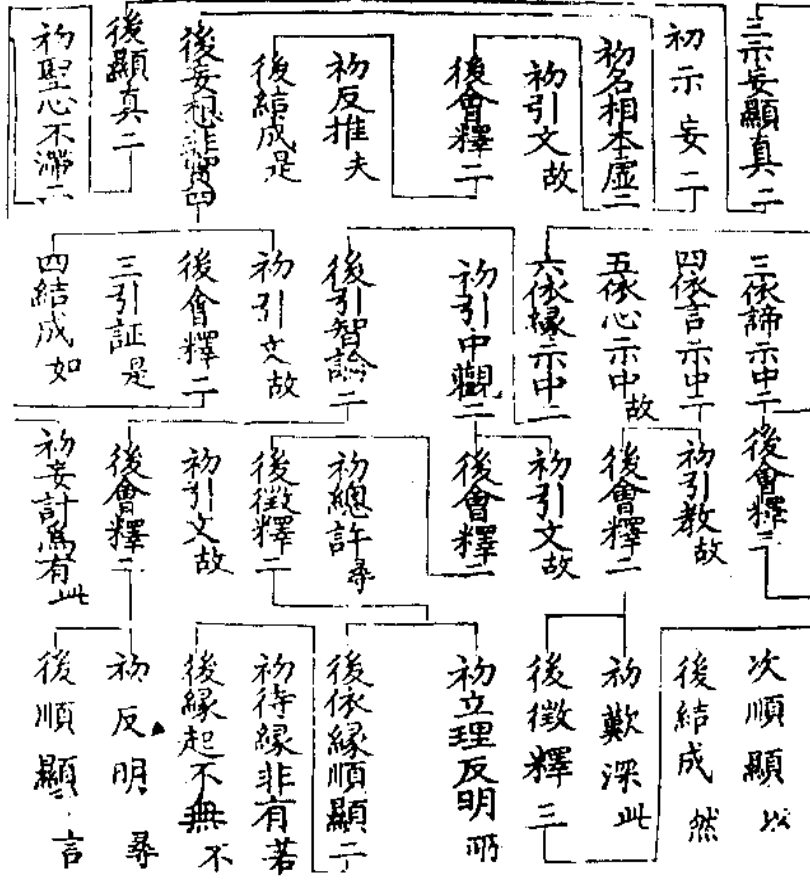 三示妄顯真二
初示妄二
初名相本虛二
初引文故
後會釋二
初反推夫
後結成是
後妄想非實四
後顯真二
初聖心不滯二
三依諦示中二
四依言示中二
五依心示中故
六依緣示中二
初引中觀二
後引智論二
初引文故
後會釋二
三引証是
四結成如
後會釋二
初引教故
後會釋二
初引文故
後會釋二
初總許尋
後徵釋二
初引文故
後會釋二
初妄計為有此
次順顯以
後結成然
初歎深此
後徵釋三
初立理反明所
後依緣順顯二
初待緣非有若
後緣起不無不
初反明尋
後順顯言